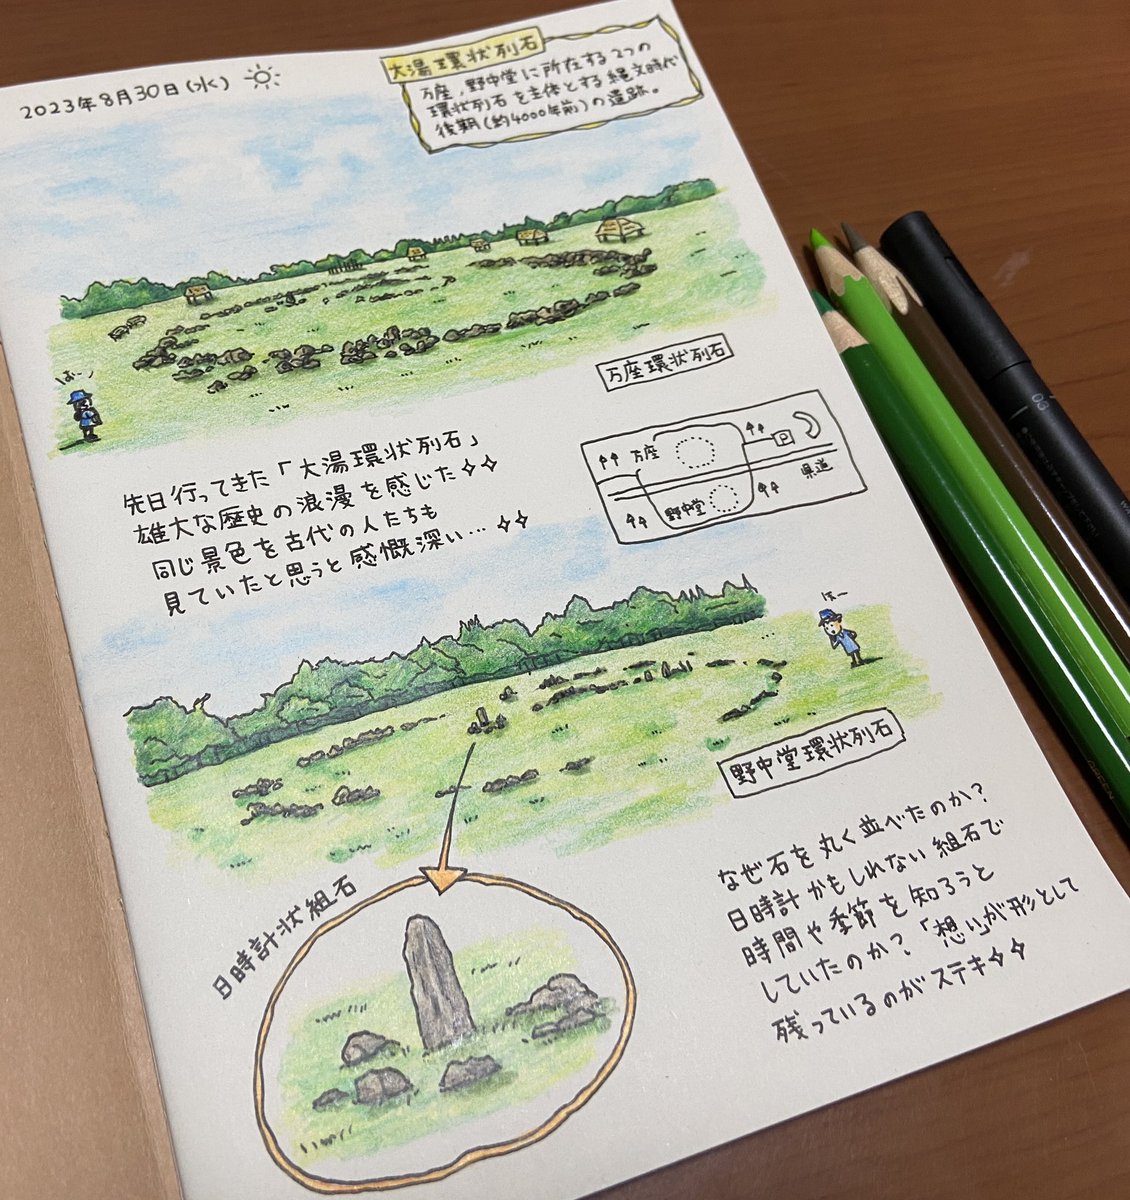 2023年8月30日(水)
大湯環状列石
万座,野中堂に所在する2つの
環状列石を主体とする縄文時代
後期(約4000年前)の遺跡。
ほー
万座環状列石
万座
P
県道
野中堂
先日行ってきた「大湯環状列石」
雄大な歴史の浪漫を感じた✧✧
同じ景色を古代の人たちも
見ていたと思うと感慨深い…✧✧
ほー
野中堂環状列石
日時計状組石
なぜ石を丸く並べたのか?
日時計かもしれない組石で
時間や季節を知ろうと
していたのか?「想い」が形として
残っているのがステキ✧✧
03